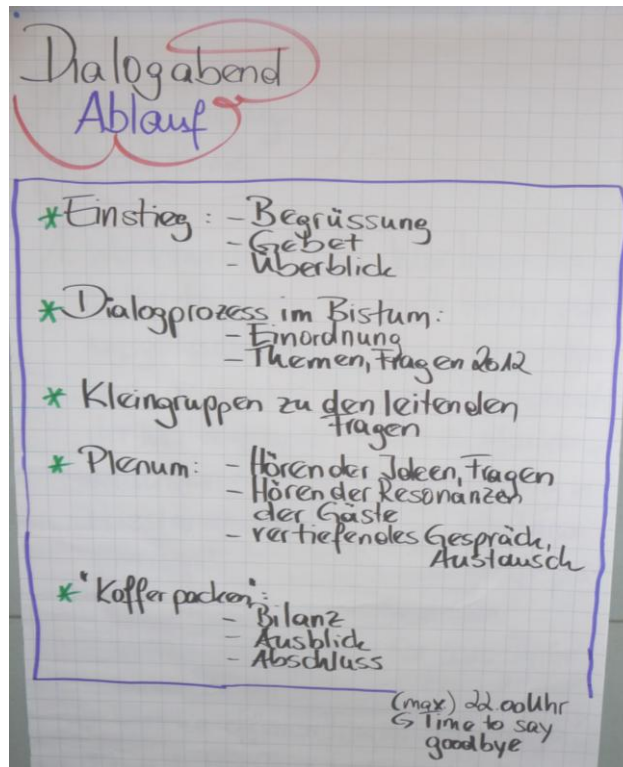 Dialogabend
Ablauf
* Einstieg: - Begrüssung
- Gebet
- Überblick
* Dialogprozess im Bistum:
- Einordnung
- Themen, Fragen 2012
* Kleingruppen zu den leitenden
Fragen
* Plenum: - Hören der Ideen, Fragen
- Hören der Resonanzen
der Gäste
- vertiefendes Gespräch,
Austausch
* "Koffer packen":
- Bilanz
- Ausblick
- Abschluss
(max) 22.00 Uhr
↳ Time to say
goodbye